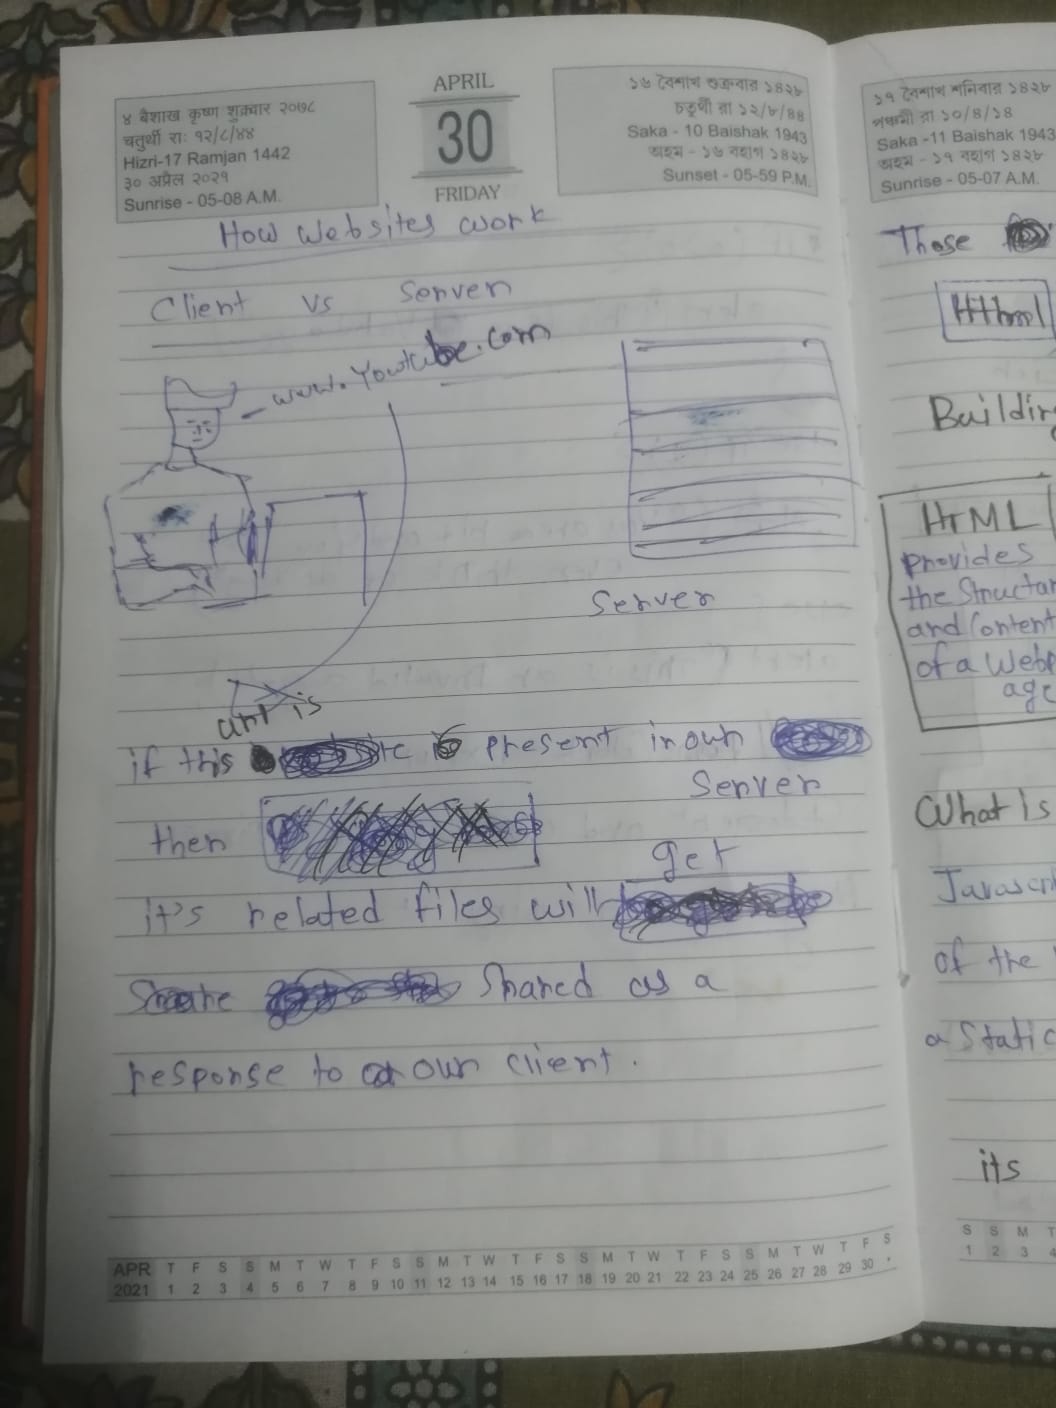 ४ बैशाख कृष्ण शुक्रवार २०७८
चतुर्थी राः १२/८/४४
Hizri-17 Ramjan 1442
३० अप्रैल २०२१
Sunrise - 05-08 A.M.
APRIL
30
FRIDAY
১৬ বৈশাখ শুক্রবার ১৪২৮
চতুর্থী রা ১২/৮/৪৪
Saka - 10 Baishak 1943
অহম - ১৬ বহাগ ১৪২৮
Sunset - 05-59 P.M.
How Websites work
Client vs Server
www.Youtube.com
Server
url is
if this present in our
Server
then
get
it's related files will
Shared as a
response to our client.
APR T F S S M T W T F S S M T W T F S S M T W T F S S M T W T F S
2021 1 2 3 4 5 6 7 8 9 10 11 12 13 14 15 16 17 18 19 20 21 22 23 24 25 26 27 28 29 30 *
১৭ বৈশাখ শনিবার ১৪২৮
পঞ্চমী রা ১০/৪/১৪
Saka -11 Baishak 1943
অহম - ১৭ বহাগ ১৪২৮
Sunrise - 05-07 A.M.
These
Buildin
HTML
provides
the Structur
and Content
of a Webp
age
What Is
Javascri
of the
a Static
its
S S M T
1 2 3 4